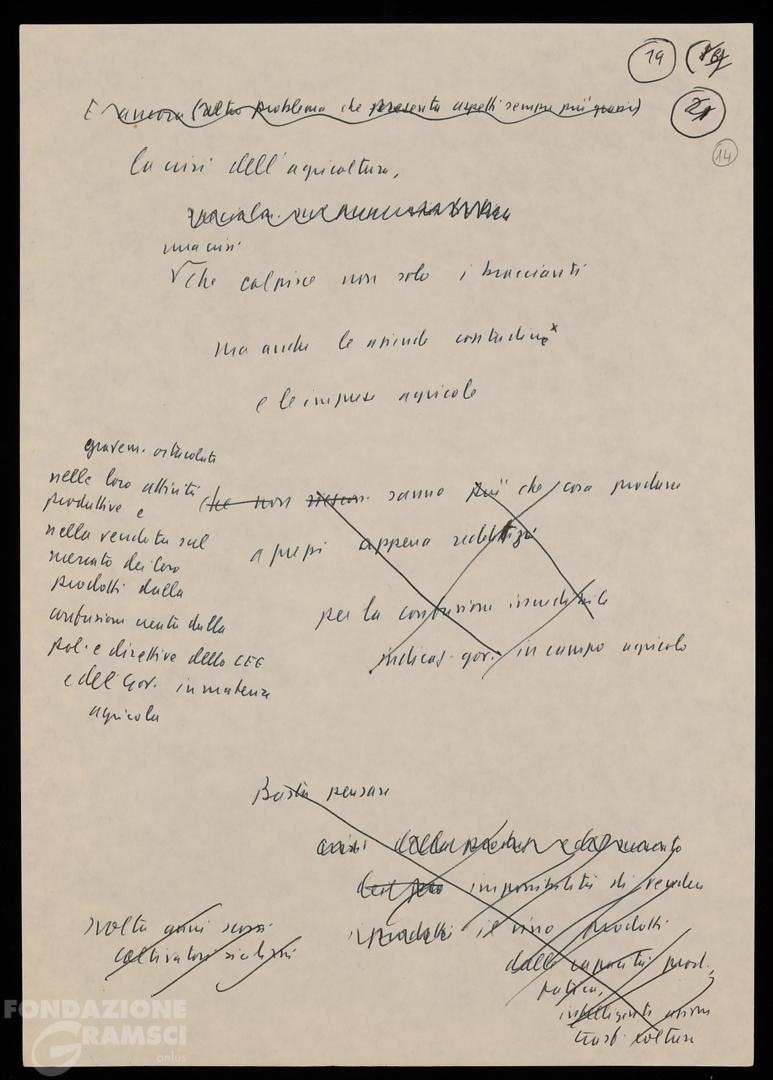 19
21
14
E ancora (altro problema che presenta aspetti sempre più gravi)
la crisi dell'agricoltura,
una crisi
che colpisce non solo i braccianti
ma anche le aziende contadine x
e le imprese agricole
gravem. ostacolati
nelle loro attività
produttive e
nella vendita sul
mercato dei loro
prodotti dalla
confusione creata dalla
pol. e direttive della CEE
e del Gov. in materia
agricola
che non sanno più che cosa produrre
a prezzi appena
per la confusione
indicaz. gov. in campo agricolo
Basta pensare
impossibilità di vendere
i prodotti il vino prodotti
dalle capacità prod.
intelligenti
trasf. colture
svolta anni scorsi
coltivatori siciliani
FONDAZIONE
GRAMSCI
onlus